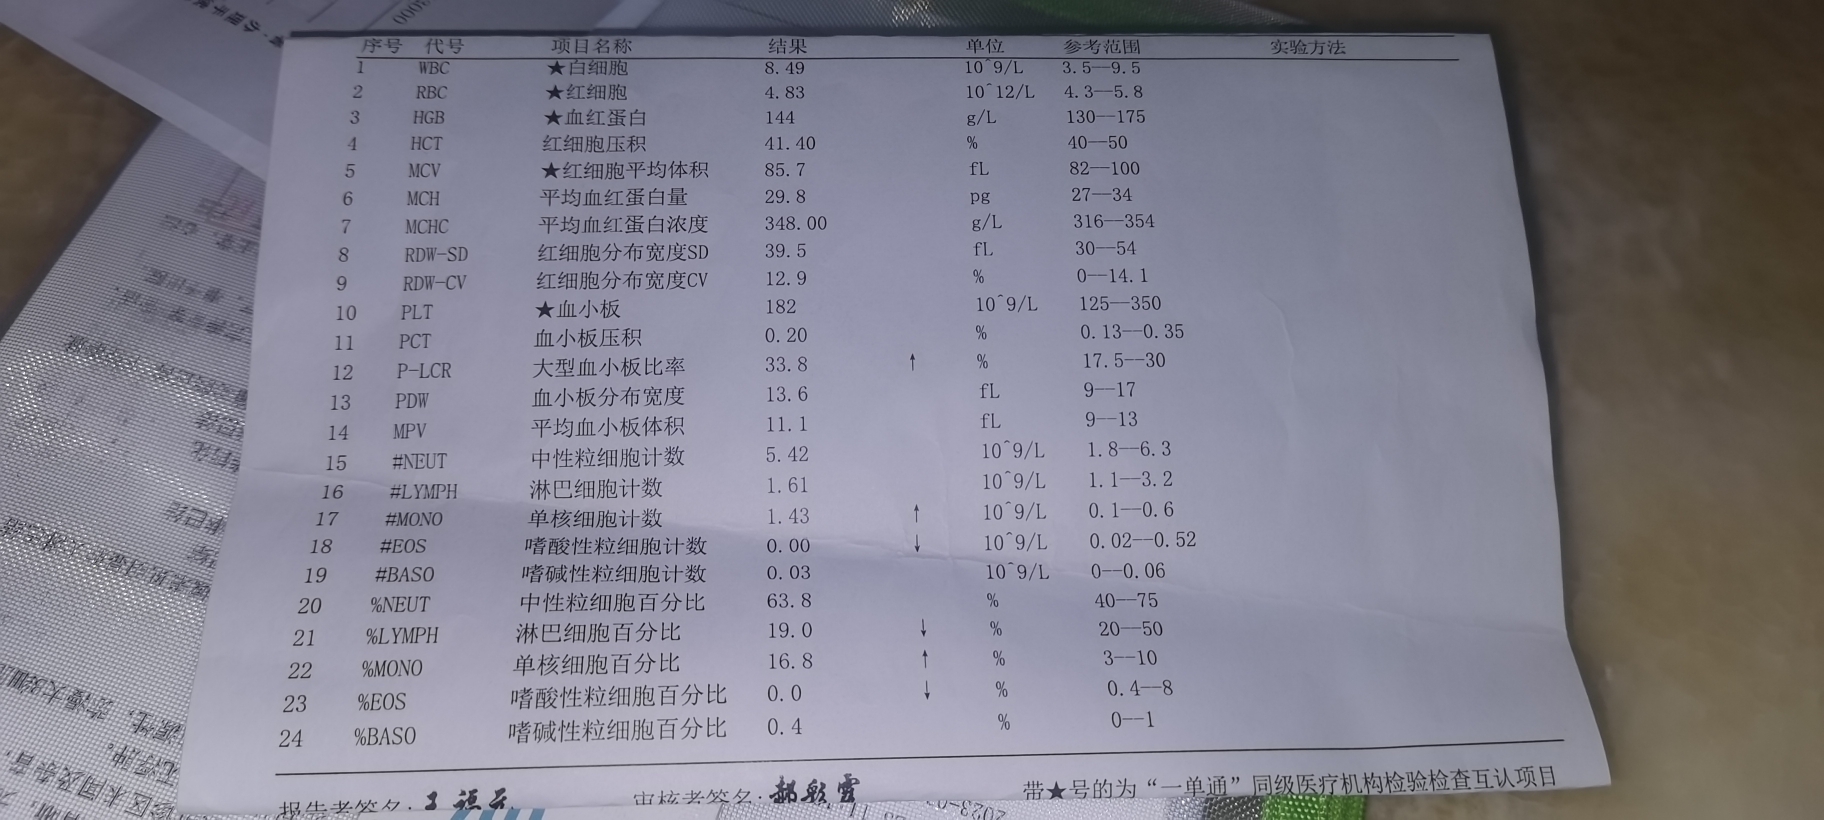 序号 代号 项目名称 结果 单位 参考范围 实验方法
1 WBC ★白细胞 8.49 10^9/L 3.5--9.5
2 RBC ★红细胞 4.83 10^12/L 4.3--5.8
3 HGB ★血红蛋白 144 g/L 130--175
4 HCT 红细胞压积 41.40 % 40--50
5 MCV ★红细胞平均体积 85.7 fL 82--100
6 MCH 平均血红蛋白量 29.8 pg 27--34
7 MCHC 平均血红蛋白浓度 348.00 g/L 316--354
8 RDW-SD 红细胞分布宽度SD 39.5 fL 30--54
9 RDW-CV 红细胞分布宽度CV 12.9 % 0--14.1
10 PLT ★血小板 182 10^9/L 125--350
11 PCT 血小板压积 0.20 % 0.13--0.35
12 P-LCR 大型血小板比率 33.8 ↑ % 17.5--30
13 PDW 血小板分布宽度 13.6 fL 9--17
14 MPV 平均血小板体积 11.1 fL 9--13
15 #NEUT 中性粒细胞计数 5.42 10^9/L 1.8--6.3
16 #LYMPH 淋巴细胞计数 1.61 10^9/L 1.1--3.2
17 #MONO 单核细胞计数 1.43 ↑ 10^9/L 0.1--0.6
18 #EOS 嗜酸性粒细胞计数 0.00 ↓ 10^9/L 0.02--0.52
19 #BASO 嗜碱性粒细胞计数 0.03 10^9/L 0--0.06
20 %NEUT 中性粒细胞百分比 63.8 % 40--75
21 %LYMPH 淋巴细胞百分比 19.0 ↓ % 20--50
22 %MONO 单核细胞百分比 16.8 ↑ % 3--10
23 %EOS 嗜酸性粒细胞百分比 0.0 ↓ % 0.4--8
24 %BASO 嗜碱性粒细胞百分比 0.4 % 0--1
报告者签名: 审核者签名: 带★号的为“一单通”同级医疗机构检验检查互认项目